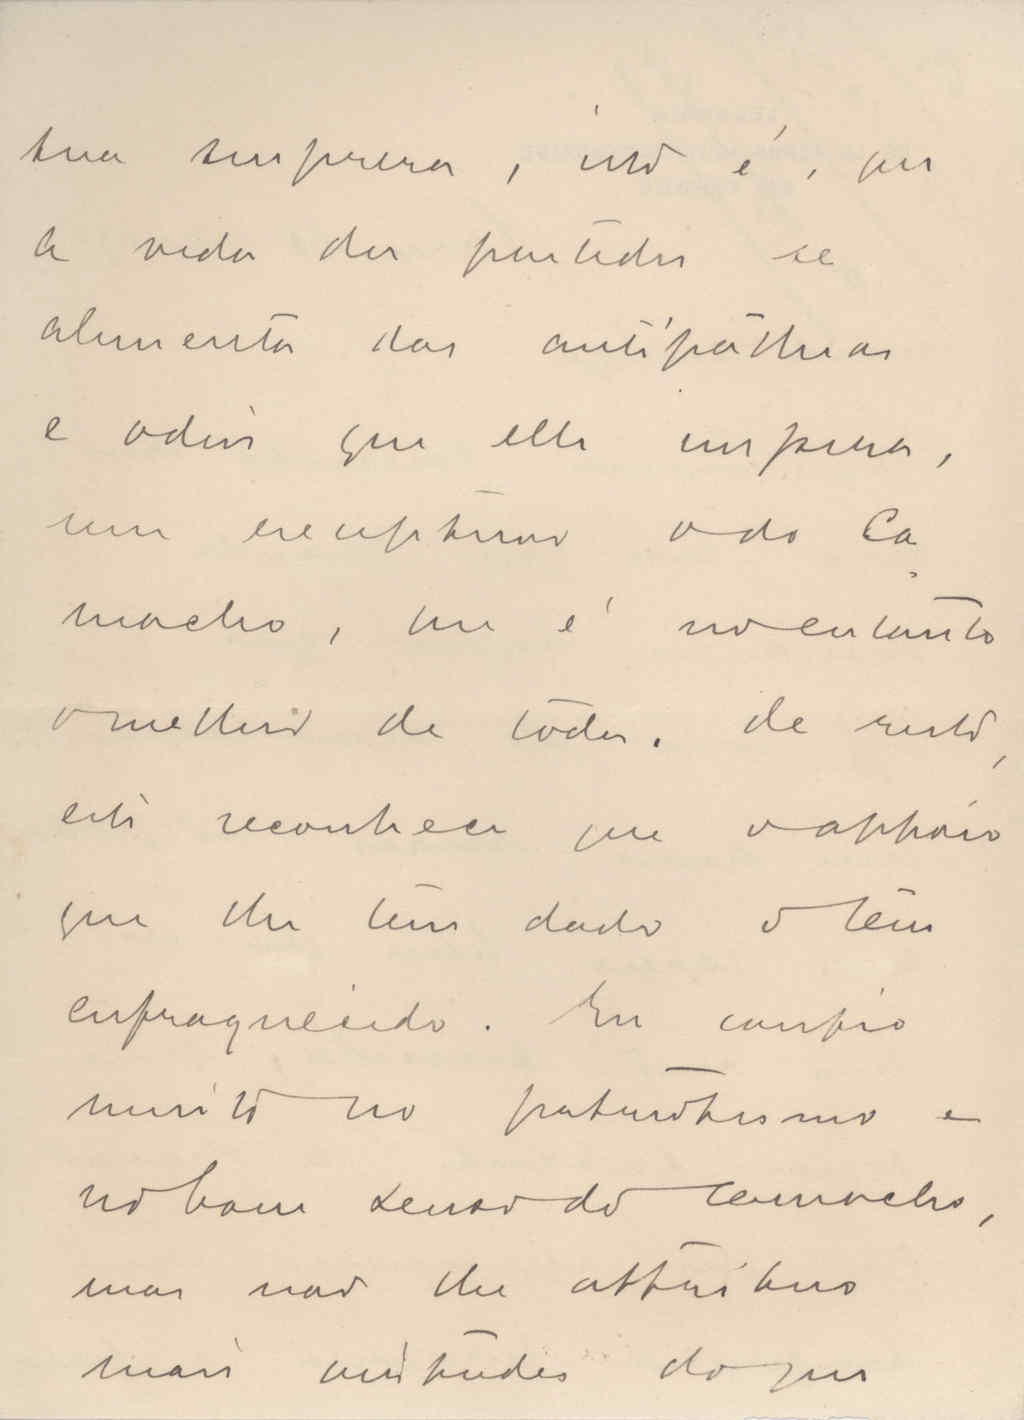 tua surpreza, isto é, que
a vida dos partidos se
alimenta das antipathias
e odios que elles inspiram,
sem exceptuar o do Ca
macho, que é no entanto
o melhor de todos. De resto,
este reconhece que o appoio
que lhe tem dado o tem
enfraquecido. Eu confio
muito no patriotismo e
no bom senso do Camacho,
mas não lhe attribuo
mais virtudes do que